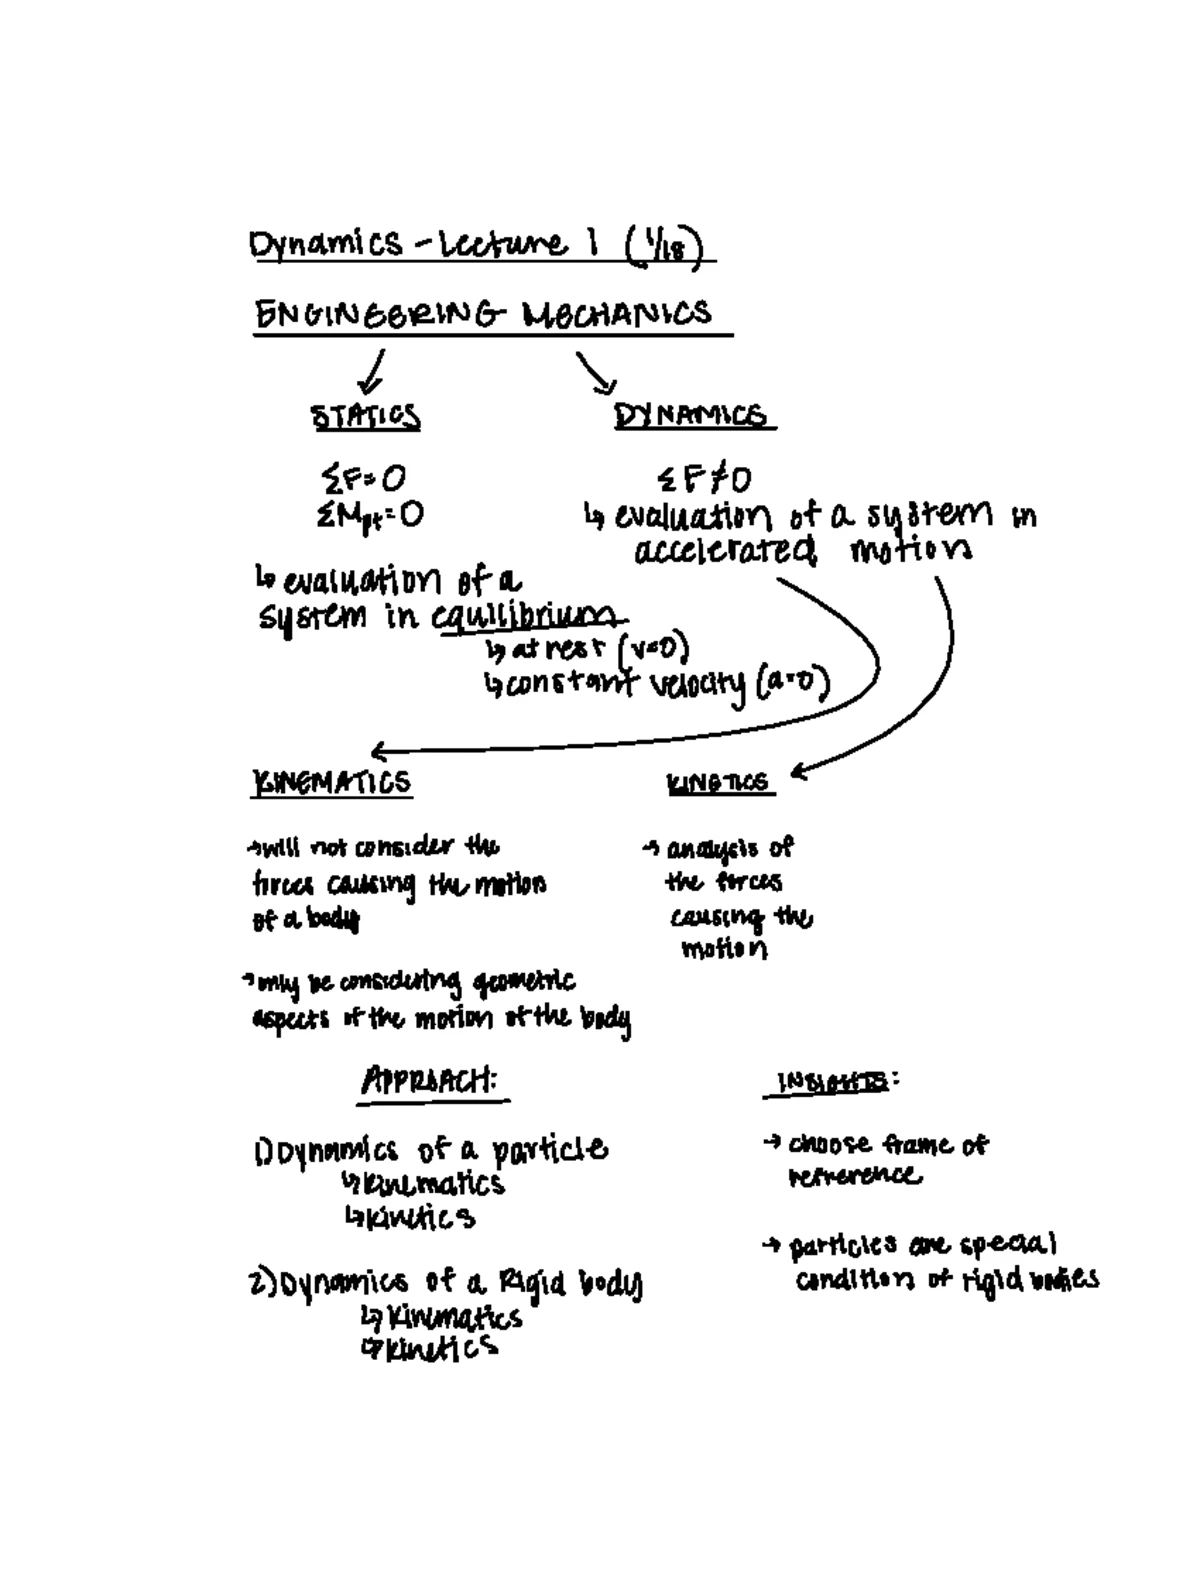 Dynamics - Lecture 1 (1/18)
ENGINEERING MECHANICS
STATICS
DYNAMICS
ΣF=0
ΣM_pt=0
↳ evaluation of a
system in equilibrium
↳ at rest (v=0)
↳ constant velocity (a=0)
ΣF≠0
↳ evaluation of a system in
accelerated motion
KINEMATICS
→ will not consider the
forces causing the motion
of a body
→ only be considering geometric
aspects of the motion of the body
KINETICS
→ analysis of
the forces
causing the
motion
APPROACH:
1) Dynamics of a particle
↳ kinematics
↳ kinetics
2) Dynamics of a Rigid body
↳ kinematics
↳ kinetics
INSIGHTS:
→ choose frame of
refrerence
→ particles are special
condition of rigid bodies